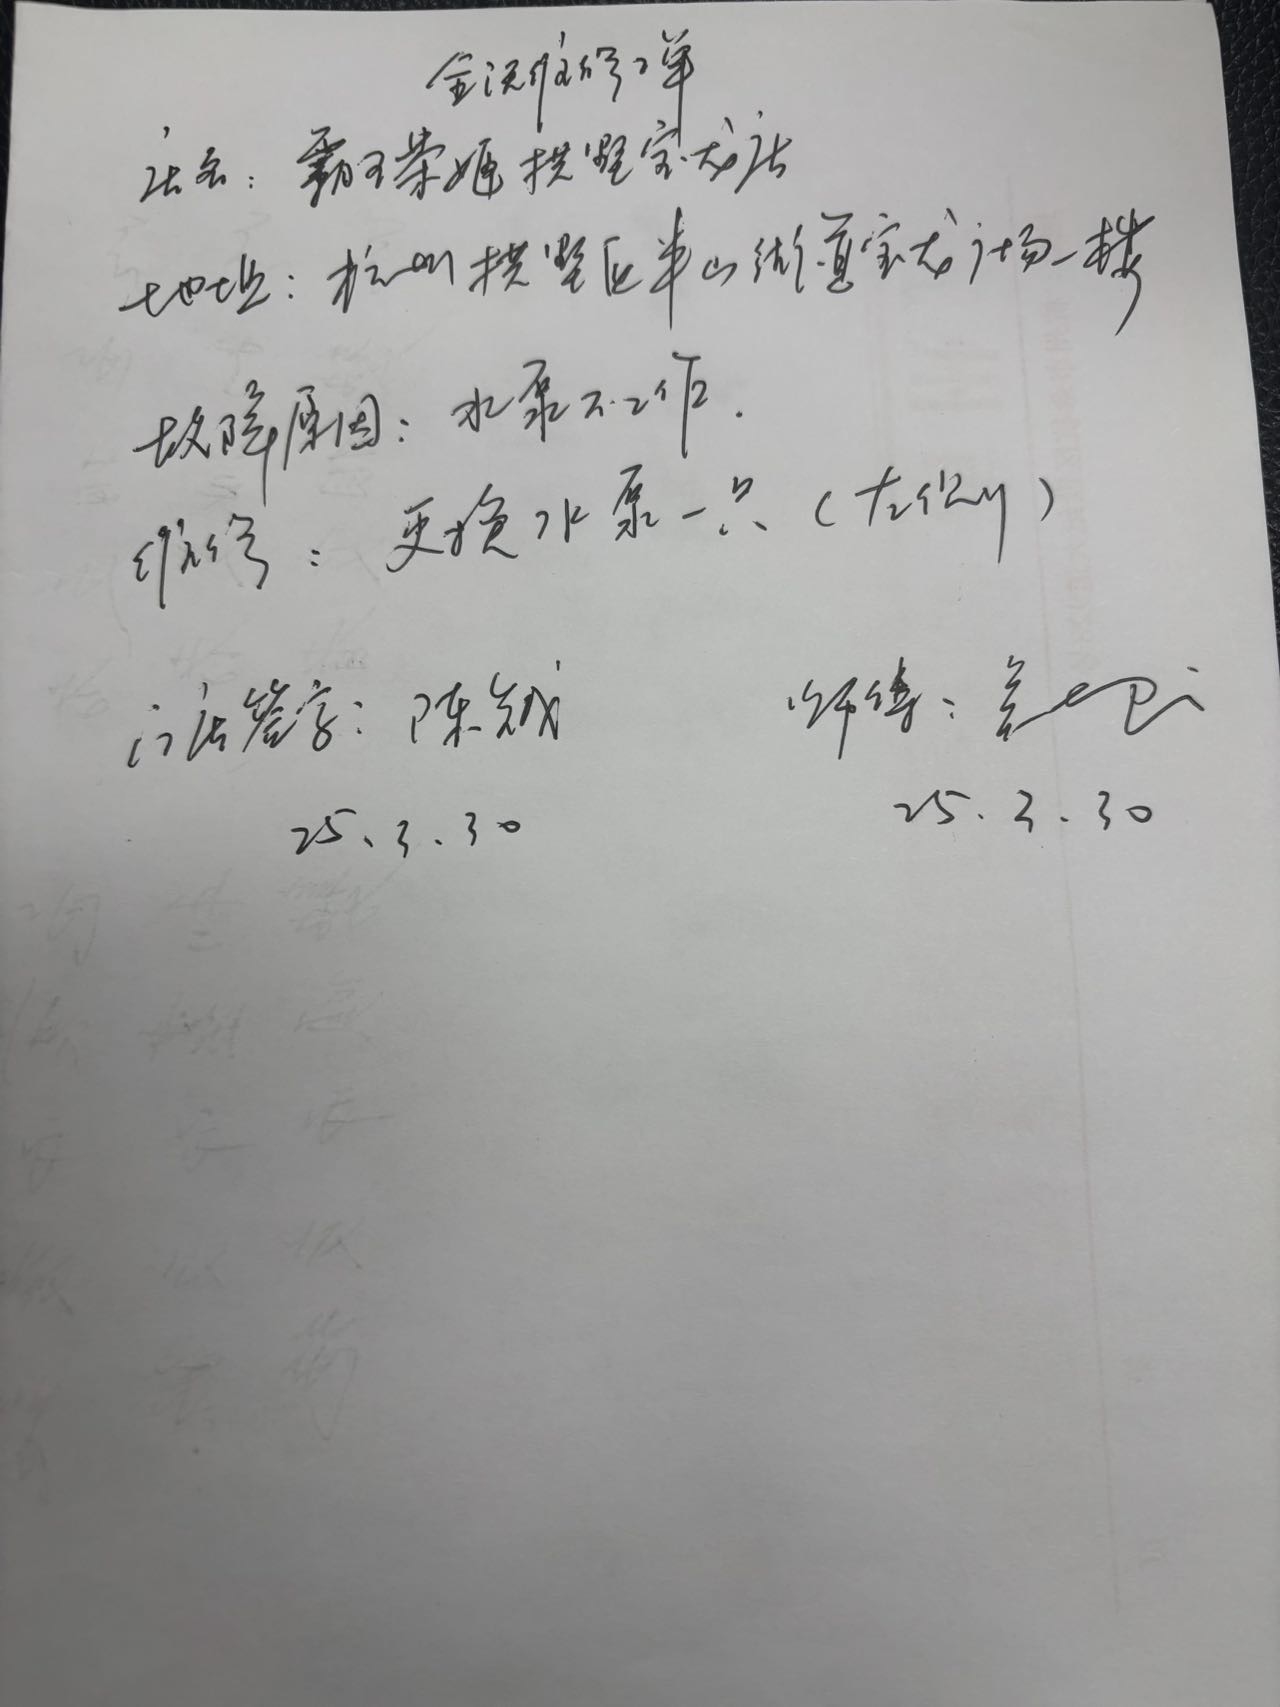 维修单
店名：霸王茶姬拱墅宝龙店
地址：杭州拱墅区半山街道宝龙广场一楼
故障原因：水泵不工作.
维修：更换水泵一只（在保内）
门店签字：陈
师傅：
25.3.30
25.3.30